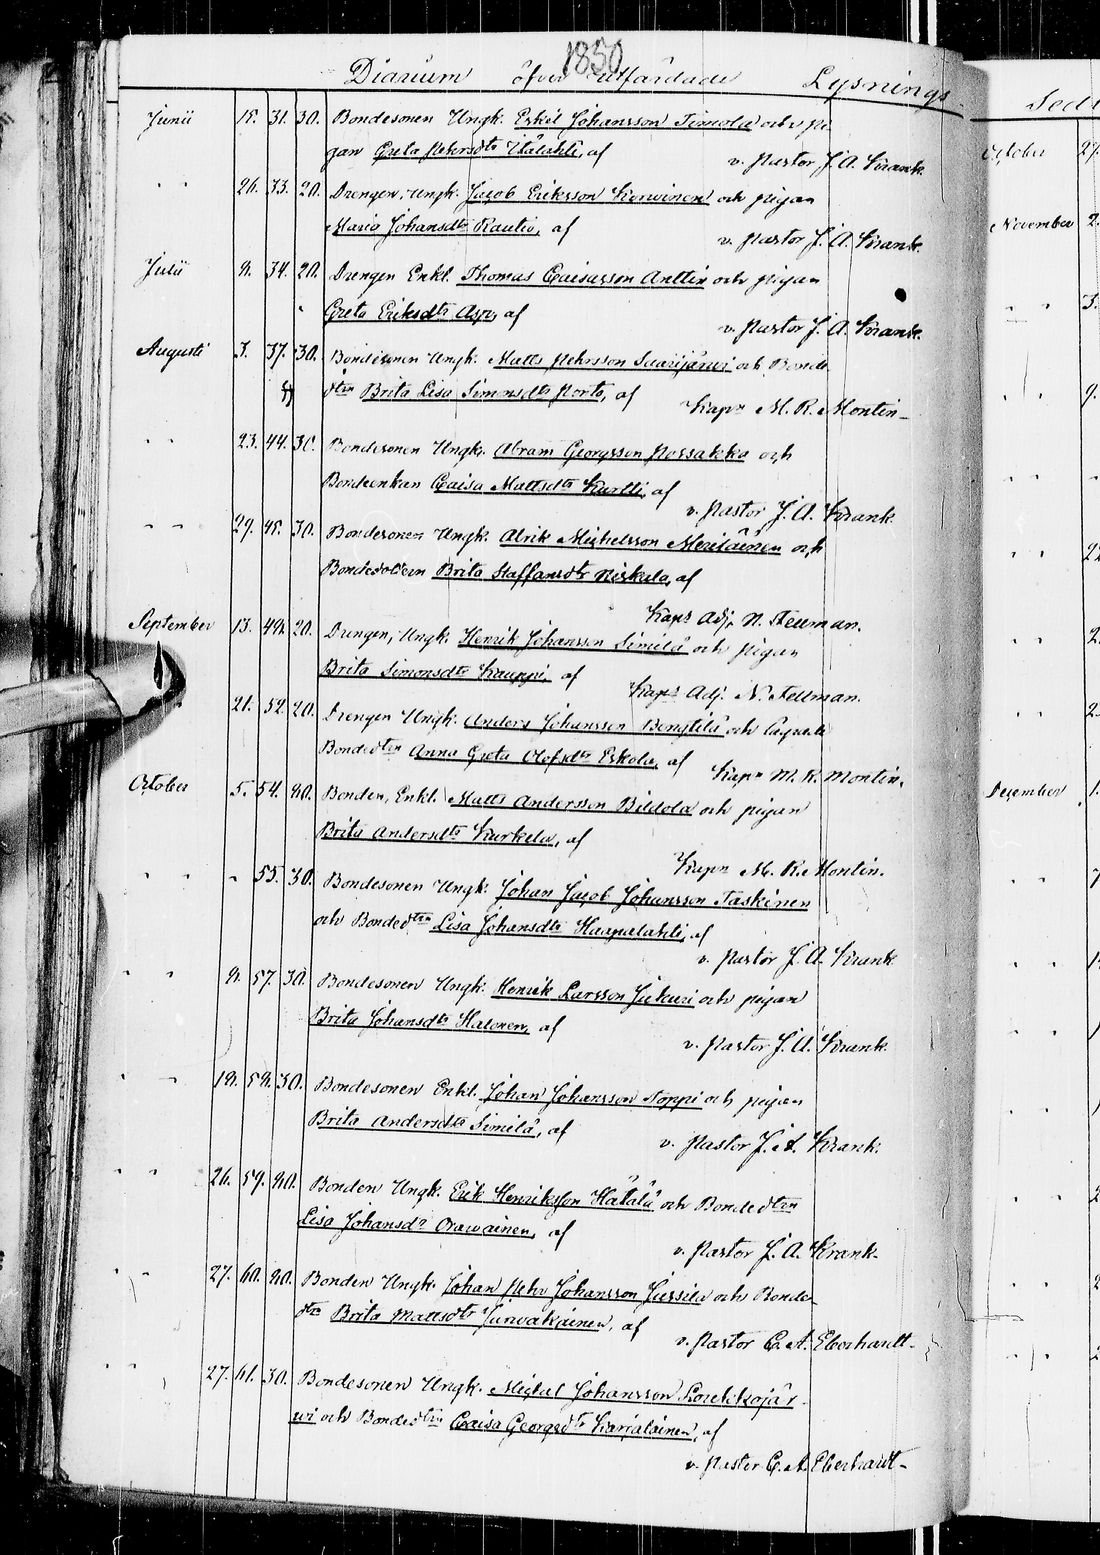 1850
Diarium öfver utfärdade Lysnings
Junii 15. 31. 30. Bondesonen Ungk. Eskil Johansson Timola och pi
gan Greta Pehrsdtr Itälahti, af
v. Pastor J. A. Krank.
" " 26. 33. 20. Drengen, Ungk. Jacob Eriksson Korvinen och pigan
Maria Johansdtr Rautio, af
v. Pastor J. A. Krank.
Julii 9. 34. 20. Drengen Enkl. Thomas Caisasson Anttin och pigan
Greta Eriksdtr Asp, af
v. Pastor J. A. Krank.
Augusti 3. 37. 30. Bondesonen Ungk. Matts Pehrsson Suarijärvi och Bonde
dtrn Brita Lisa Simonsdtr Porto, af
Kapn M. R. Montin
" " 23. 44. 30. Bondesonen Ungk. Abram Georgsson Possakka och
Bondeenkan Caisa Mattsdtr Kurtti, af
v. Pastor J. A. Krank.
" " 29. 45. 30. Bondesonen Ungk. Alrik Michelsson Meriläinen och
Bondedottern Brita Staffansdtr Niskala, af
Kaps Adj. N. Fellman.
September 13. 49. 20. Drengen, Ungk. Henrik Johansson Similä och pigan
Brita Simonsdtr Kauppi, af
Kaps Adj. N. Fellman.
21. 52. 20. Drengen Ungk. Anders Johansson Bengtilä och
Bondedtrn Anna Greta Olofsdtr Eskola, af
Kapn M. R. Montin.
October 5. 54. 80. Bonden, Enkl. Matts Andersson Bildola och pigan
Brita Andersdtr Kurkela, af
Kapn M. R. Montin.
" " " 55. 30. Bondesonen Ungk. Johan Jacob Johansson Taskinen
och Bondedtrn Lisa Johansdtr Haapalahti, af
v. Pastor J. A. Krank
" " 9. 57. 30. Bondesonen Ungk. Henrik Larsson Jukuri och pigan
Brita Johansdtr Halonen, af
v. Pastor J. A. Krank.
" " 19. 58. 30. Bondesonen Enkl. Johan Johansson Noppi och pigan
Brita Andersdtr Similä, af
v. Pastor J. A. Krank.
" " 26. 59. 80. Bonden Ungk. Erik Henriksson Hätälä och Bondedtrn
Lisa Johansdr Orawainen, af
v. Pastor J. A. Krank.
" " 27. 60. 80. Bonden Ungk. Johan Pehr Johansson Jussila och Bonde-
dtrn Brita Mattsdtr Jurvakainen, af
v. Pastor C. A. Eberhardt.
" " 27. 61. 30. Bondesonen Ungk. Michel Johansson Loukkojär
wi och Bondedtrn Caisa Georgsdtr Karjalainen, af
v. Pastor C. A. Eberhardt
October 27.
November 2.
" " 3.
December 1.